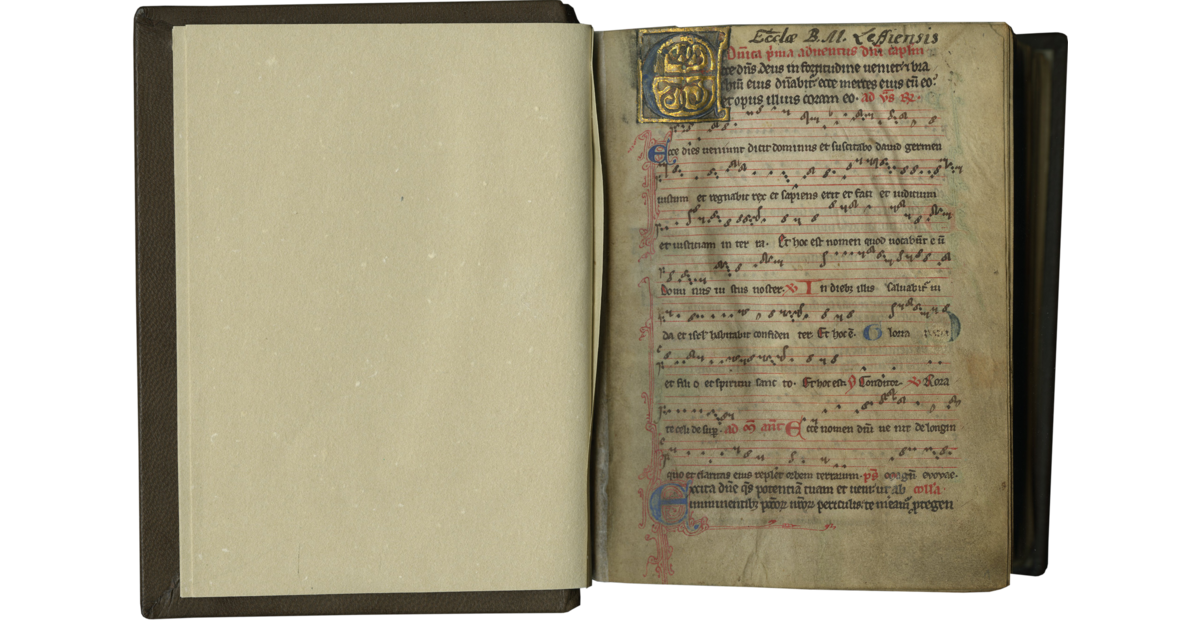 Ecclæ B.M. Leffiensis
Dñica p'ma adventus dñi capl'm
Ecce dñs deus in fortitudine veniet et bra
chiũ eius dñabit' ecce merces eius cũ eo
et opus illius coram eo. ad vs. R.
Ecce dies veniunt dicit dominus et suscitabo david germen
iustum et regnabit rex et sapiens erit et faci et iudicium
et iusticiam in ter ra. Et hoc est nomen quod vocabũt e ũ
Domi nus iu stus noster. V In dieb; illis salvabit' iu
da et isrl' habitabit confiden ter. Et hoc ẽ. Gloria
et fili o et spiritui sanc to. Et hoc est. Conditor. V Rora
te celi de sup. ad m̃ ant̃ Ecce nomen dñi ve nit de longin
quo et claritas eius replet orbem terrarum. ps evovae.
Excita dñe qs potentiã tuam et veni ut ab colla
imminentib; pctõꝝ nrõꝝ periculis te meam' ptegen